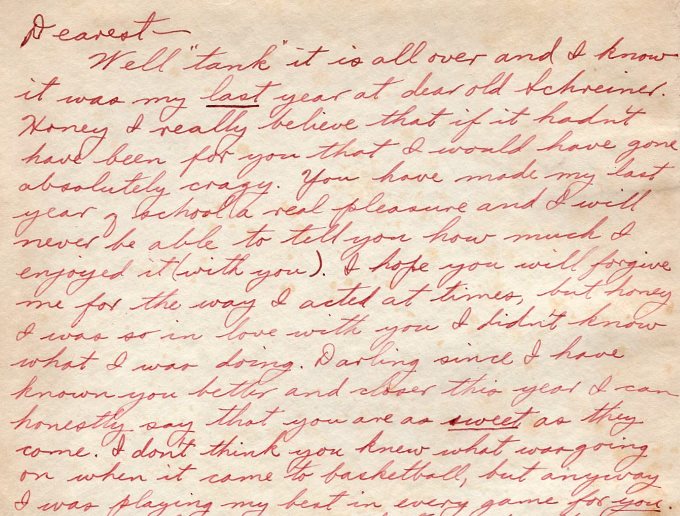 Dearest—
Well "tank" it is all over and I know
it was my last year at dear old Schreiner.
Honey I really believe that if it hadn't
have been for you that I would have gone
absolutely crazy. You have made my last
year of school a real pleasure and I will
never be able to tell you how much I
enjoyed it (with you). I hope you will forgive
me for the way I acted at times, but honey
I was so in love with you I didn't know
what I was doing. Darling since I have
known you better and closer this year I can
honestly say that you are as sweet as they
come. I don't think you knew what was going
on when it came to basketball, but anyway
I was playing my best in every game for you.